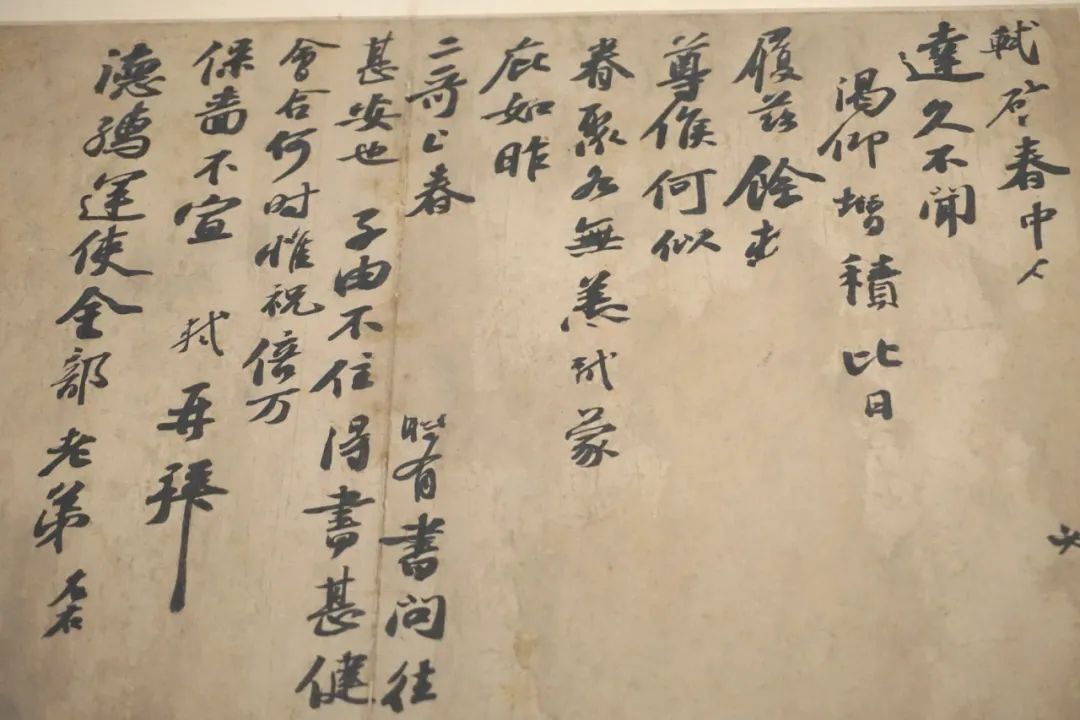 軾啓春中人
達久不聞
渴仰增積比日
履茲餘
尊候何似
眷聚各無恙軾蒙
庇如昨
二哥上春有書問往
甚安也子由不住得書甚健
會合何时惟祝倍万
保嗇不宣軾再拜
德孺運使金部老弟左右